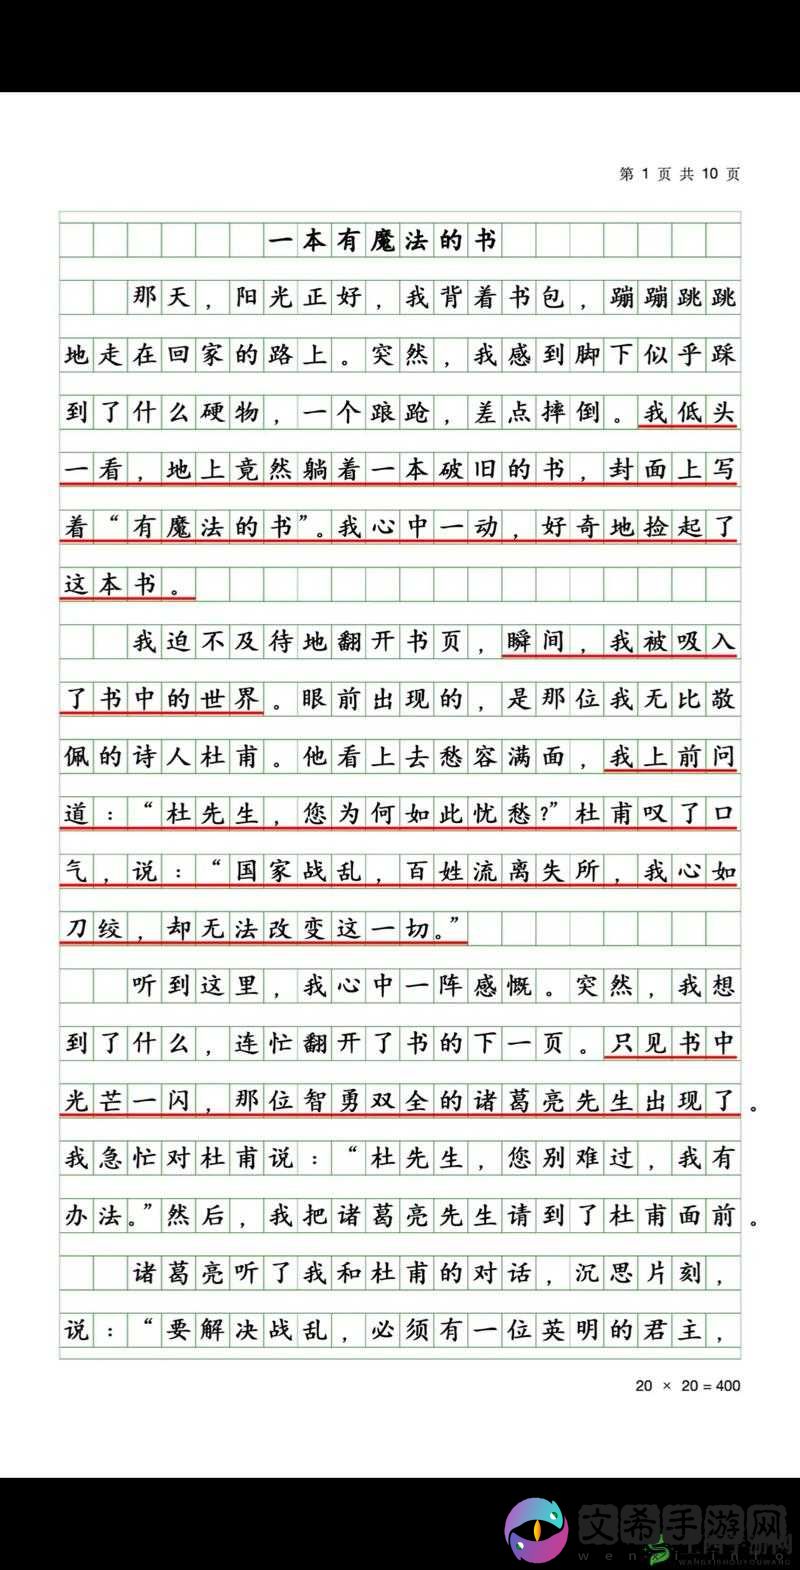 第 1 页 共 10 页
一本有魔法的书
那天，阳光正好，我背着书包，蹦蹦跳跳
地走在回家的路上。突然，我感到脚下似乎踩
到了什么硬物，一个踉跄，差点摔倒。我低头
一看，地上竟然躺着一本破旧的书，封面上写
着“有魔法的书”。我心中一动，好奇地捡起了
这本书。
我迫不及待地翻开书页，瞬间，我被吸入
了书中的世界。眼前出现的，是那位我无比敬
佩的诗人杜甫。他看上去愁容满面，我上前问
道：“杜先生，您为何如此忧愁？”杜甫叹了口
气，说：“国家战乱，百姓流离失所，我心如
刀绞，却无法改变这一切。”
听到这里，我心中一阵感慨。突然，我想
到了什么，连忙翻开了书的下一页。只见书中
光芒一闪，那位智勇双全的诸葛亮先生出现了。
我急忙对杜甫说：“杜先生，您别难过，我有
办法。”然后，我把诸葛亮先生请到了杜甫面前。
诸葛亮听了我和杜甫的对话，沉思片刻，
说：“要解决战乱，必须有一位英明的君主，
20 × 20 = 400
文希手游网